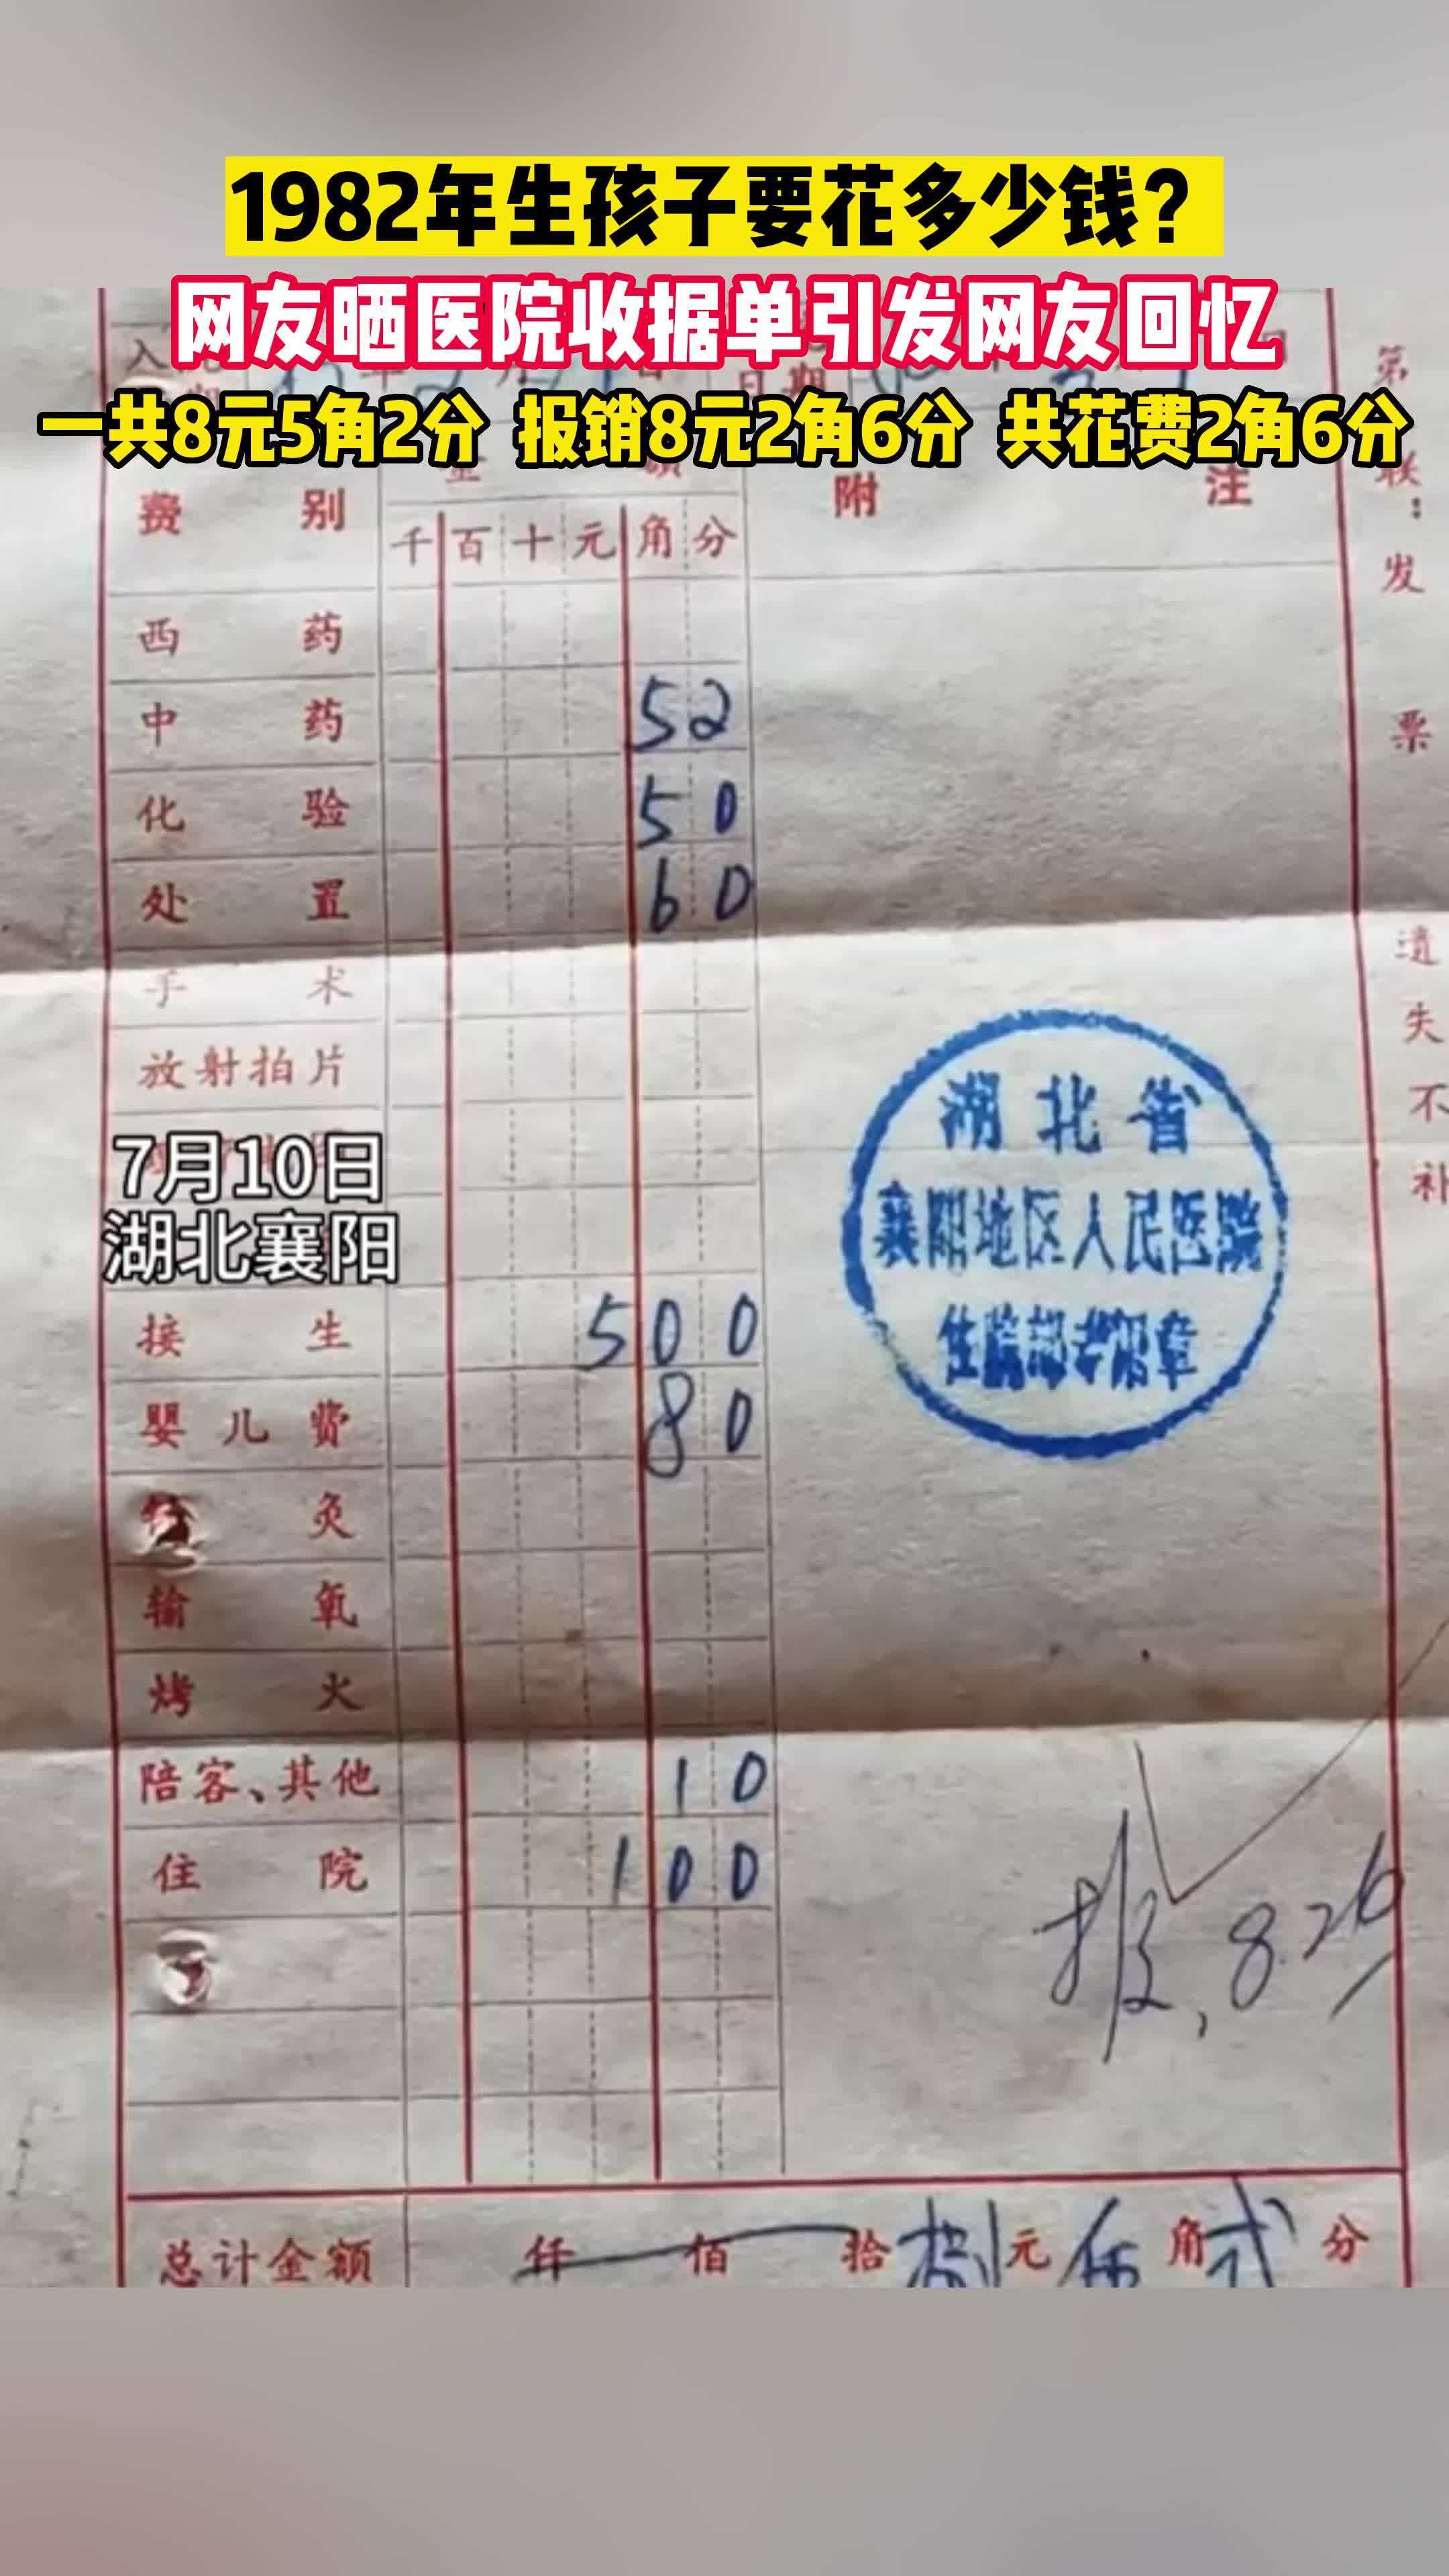 1982年生孩子要花多少钱?
网友晒医院收据单引发网友回忆
一共8元5角2分 报销8元2角6分 共花费2角6分
入
日期
第
联:
发
票
费 别
附 注
千 百 十 元 角 分
西 药
中 药 52
化 验 50
处 置 60
手 术
放射拍片
7月10日
湖北襄阳
接 生 500
婴儿费 80
灸
输 氧
烤 火
陪客、其他 10
住 院 100
遗
失
不
补
湖北省
襄阳地区人民医院
住院部专用章
报, 8.26
总计金额 仟 佰 拾 捌 元 伍 角 弍 分